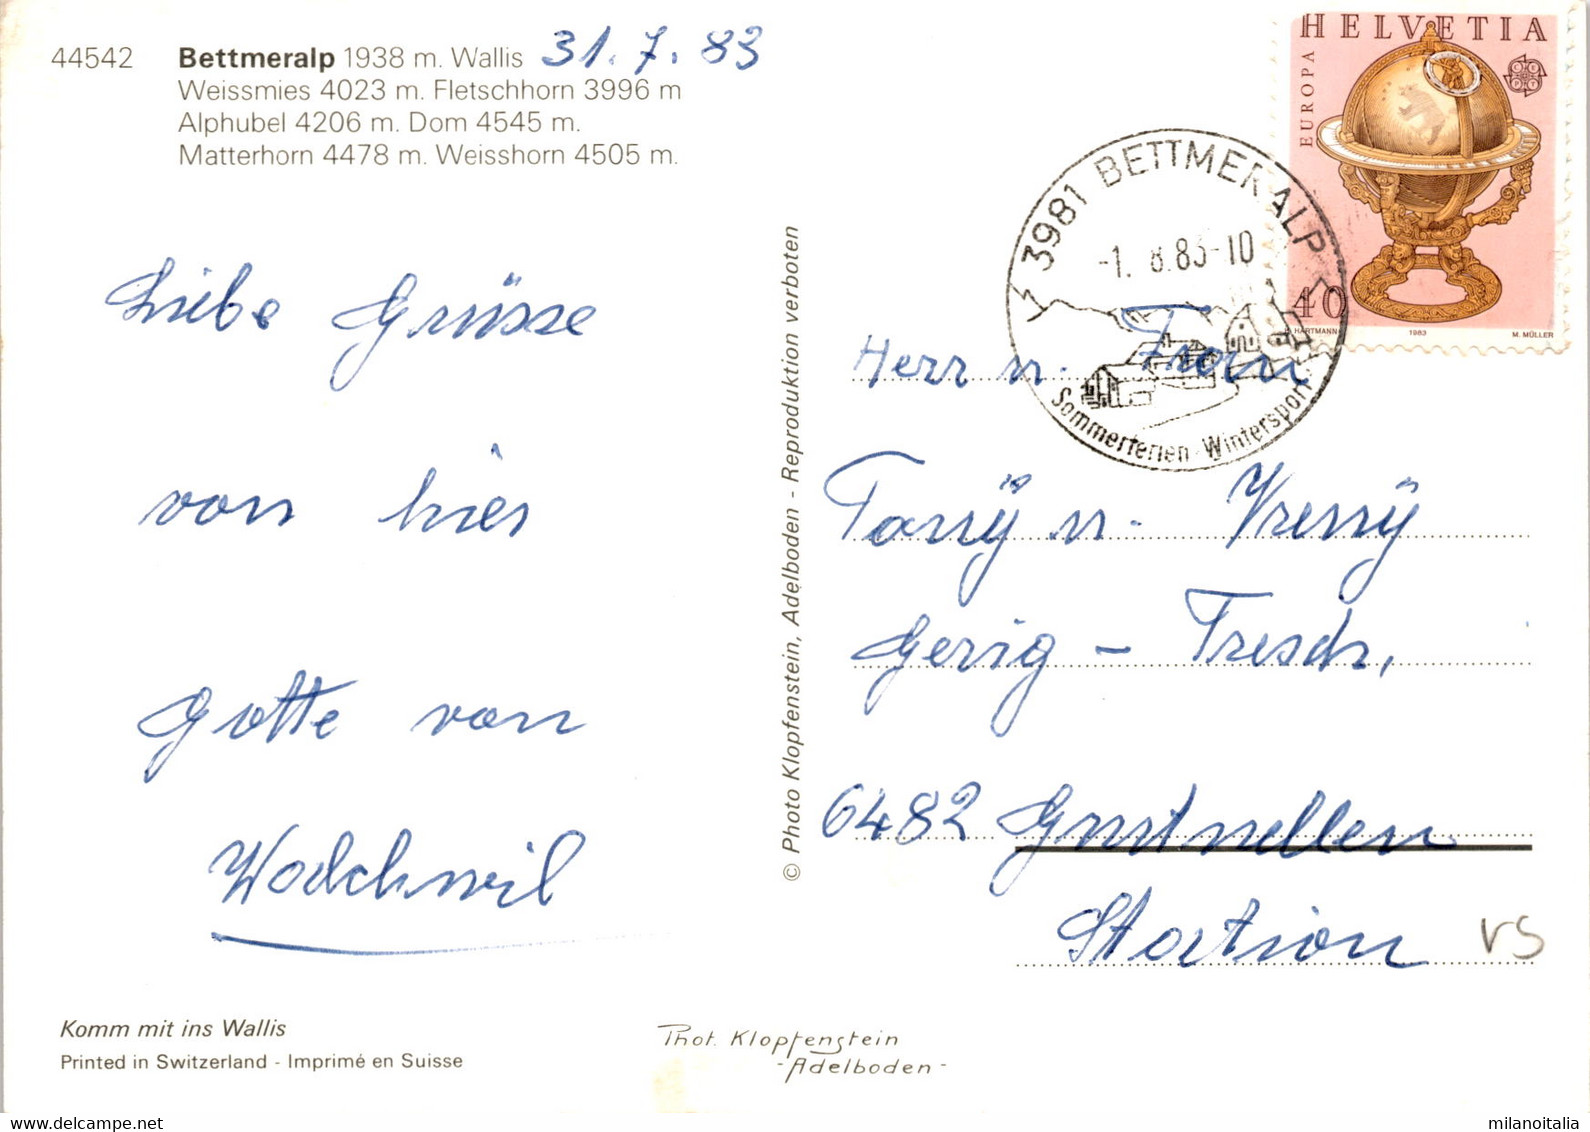 44542 Bettmeralp 1938 m. Wallis 31.7.83
Weissmies 4023 m. Fletschhorn 3996 m
Alphubel 4206 m. Dom 4545 m.
Matterhorn 4478 m. Weisshorn 4505 m.
Liebe Grüsse
von hier
Gotte von
Walchwil
Komm mit ins Wallis
Printed in Switzerland - Imprimé en Suisse
© Photo Klopfenstein, Adelboden - Reproduktion verboten
Phot. Klopfenstein
- Adelboden -
HELVETIA
EUROPA
40
HARTMANN 1983 M. MÜLLER
3981 BETTMERALP
-1. 8.83-10
Sommerferien - Wintersport
Herr u. Frau
Tonÿ u. Vrenÿ
Gerig - Tresch,
6482 Gurtnellen
Station
VS
www.delcampe.net
milanoitalia